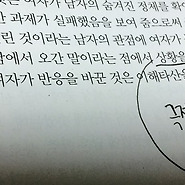 는 여자가 남자의 숨겨진 정체를 확
한 과제가 실패했음을 보여 줌으로써
린 것이라는 남자의 관점에 여자가
남에서 오간 말이라는 점에서 상황을
여자가 반응을 바꾼 것은 이해타산